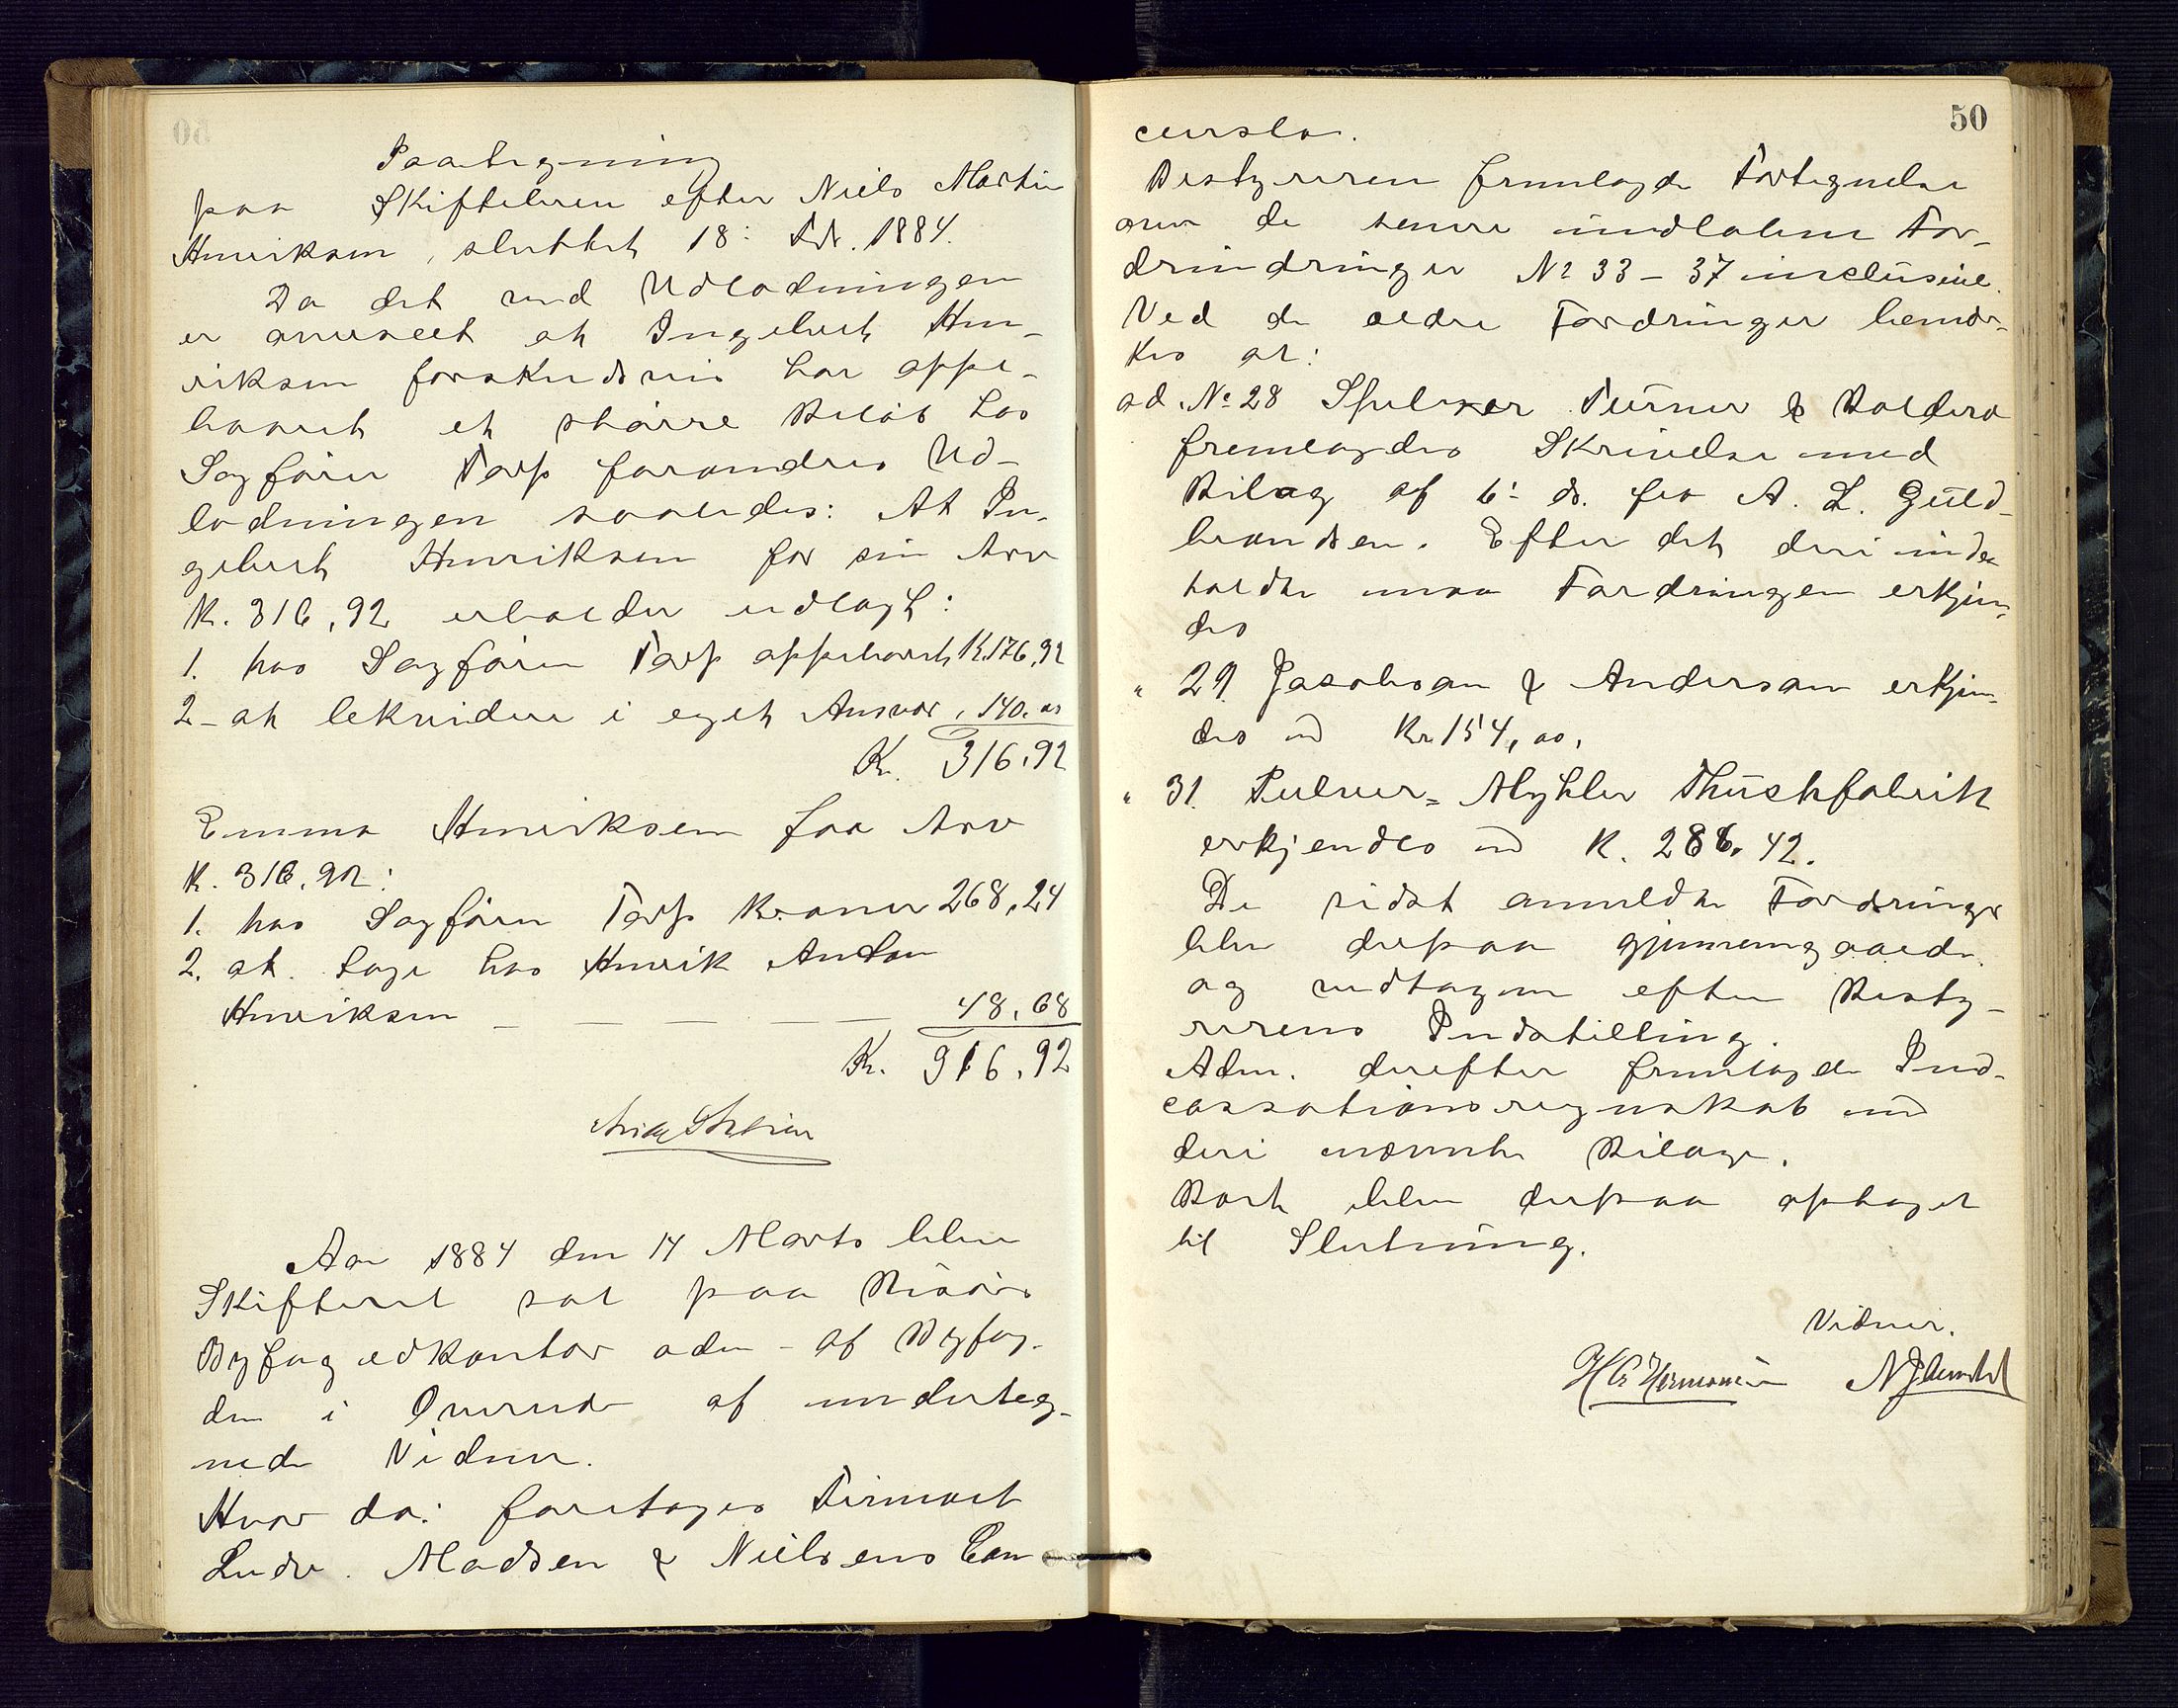 Paategning
paa Skiftebrev efter Niels Martin
Henriksen, sluttet 18: Fbr. 1884.
Da det ved Udlodningen
er overseet at Ingebret Hen-
riksen forskudsvis har oppe-
baaret et større Beløb hos
Sagfører Tarp forandres Ud-
lodningen saaledes: At In-
gebret Henriksen for sin Arv
K. 316,92 erholder udlagt:
1. hos Sagfører Tarp oppebaaret K. 176,92
2 - at lekvidere i eget Ansvar , 140.00
Kr. 316,92
Emma Henriksen faa Arv
K. 316,92:
1. hos Sagfører Tarp Kroner 268,24
2. at tage hos Henrik Anton
Henriksen — — — — 48,68
Kr. 316,92
Aar 1884 den 14 Marts blev
Skifteret sat paa Risørs
Byfogedkontor adm - af Byfog-
den i Overvær af underteg-
nede Vidner.
Hvor da: foretages Firmaet
Ludv. Madsen & Nielsens Con
50
cursbo.
Bestyreren fremlagde Fortegnelse
over de senere indlobne For-
drindringer No 33 - 37 inclusive.
Ved de ældre Fordringer bemær-
kes at:
ad. No 28 Turner &
fremlagdes Skrivelse med
Bilag af 6: ds. fra A. L. Guld-
brandsen. Efter det deri inde
holdte maa Fordringen erkjen-
des
" 29 Jacobsen & Andersen erkjen-
des med Kr 154,00.
" 31. Pulver-
erkjendes med K. 286.42.
De sidst anmeldte Fordringer
blev derpaa gjennemgaaede
og vedtagne efter Besty-
rerens Indstilling.
Adm. derefter fremlagde Ind-
cassationsregnskab med
deri nævnte Bilage.
Boet blev derpaa optaget
til Slutning.
Vidner.